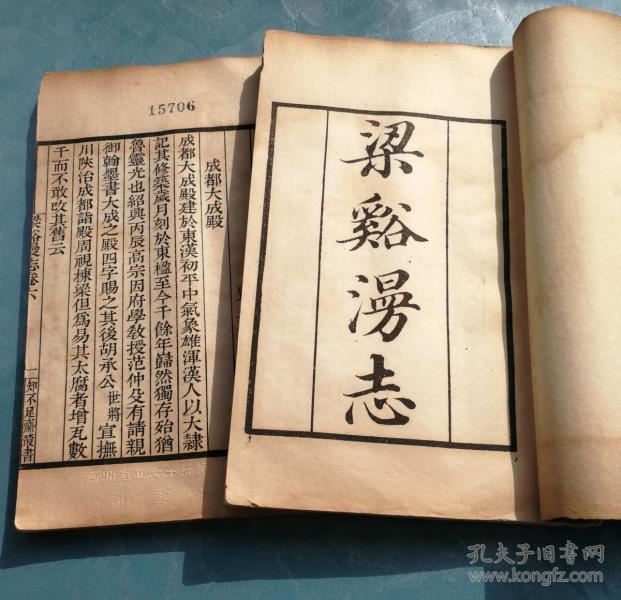 梁谿漫志
15706
成都大成殿
成都大成殿建於東漢初平中氣象雄渾漢人以大隸
記其修築歲月刻於東楹至今千餘年巋然獨存殆猶
魯靈光也紹興丙辰高宗因府學教授范仲殳有請親
御翰墨書大成之殿四字賜之其後胡承公世將宣撫
川陝治成都詣殿周視棟梁但爲易其太腐者增瓦數
千而不敢改其舊云
梁谿漫志卷六
一 知不足齋叢書
孔夫子旧书网
www.kongfz.com